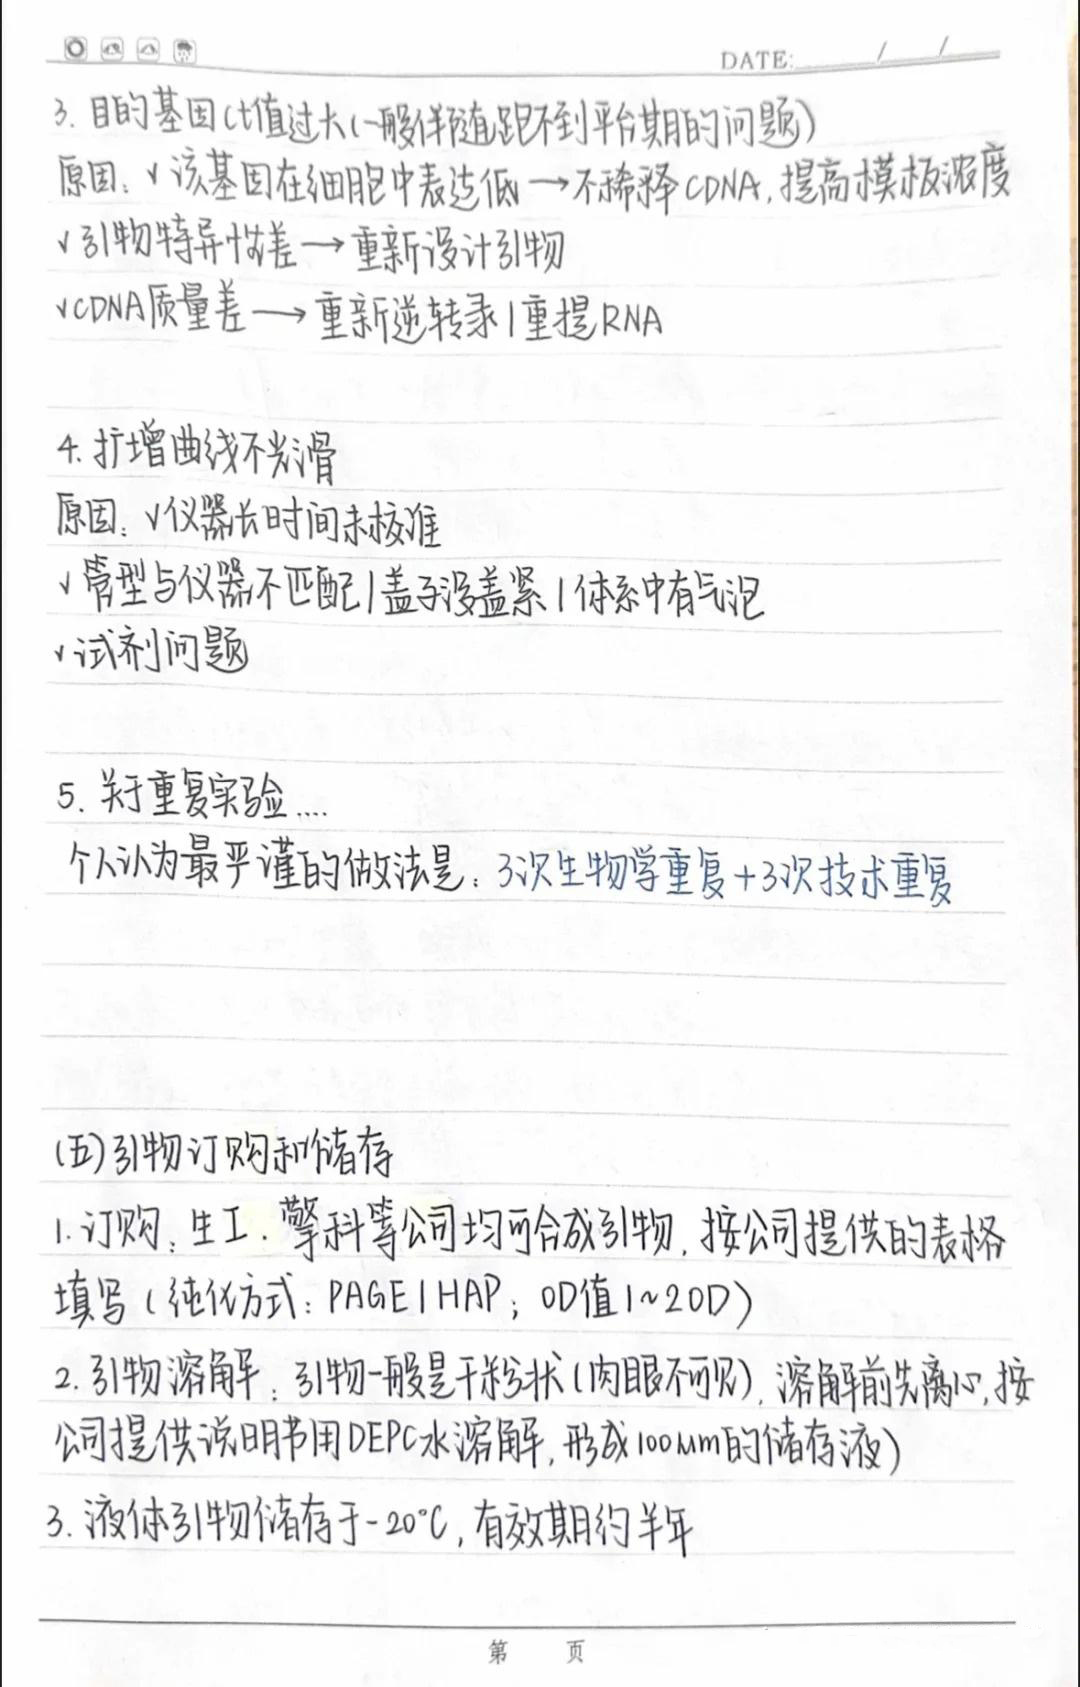 DATE: / /
3. 目的基因Ct值过大(一般伴随跑不到平台期的问题)
原因: √该基因在细胞中表达低→不稀释CDNA,提高模板浓度
√引物特异性差→重新设计引物
√CDNA质量差→重新逆转录|重提RNA
4. 扩增曲线不光滑
原因: √仪器长时间未校准
√管型与仪器不匹配|盖子没盖紧|体系中有气泡
√试剂问题
5. 关于重复实验....
个人认为最严谨的做法是: 3次生物学重复+3次技术重复
(五)引物订购和储存
1.订购: 生工. 擎科等公司均可合成引物, 按公司提供的表格
填写(纯化方式: PAGE|HAP; OD值1~2OD)
2.引物溶解: 引物一般是干粉状(肉眼不可见), 溶解前先离心,按
公司提供说明书用DEPC水溶解, 形成100μm的储存液)
3. 液体引物储存于-20℃, 有效期约半年
第 页